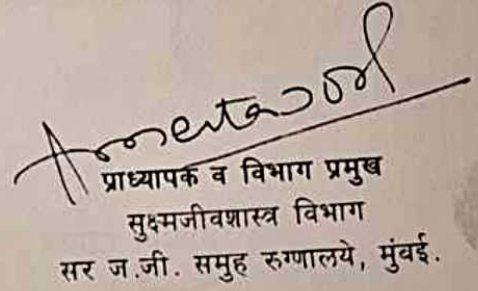 प्राध्यापक व विभाग प्रमुख
सुक्ष्मजीवशास्त्र विभाग
सर ज.जी. समुह रुग्णालये, मुंबई.